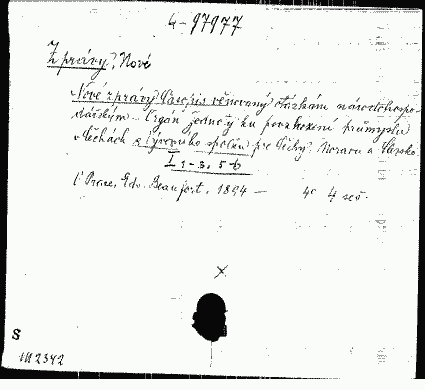 4-97977
Zprávy, Nové
Nové zprávy. Časopis věnovaný otázkám národohospo-
dářským. - Orgán jednoty ku povzbuzení průmyslu
v Čechách a vývozního spolku pro Čechy, Moravu a Slezsko.
I, 1-3, 5-6
V Praze, Ed. Beaufort, 1894 - 4° 4 seš.
X
S
1H 2342